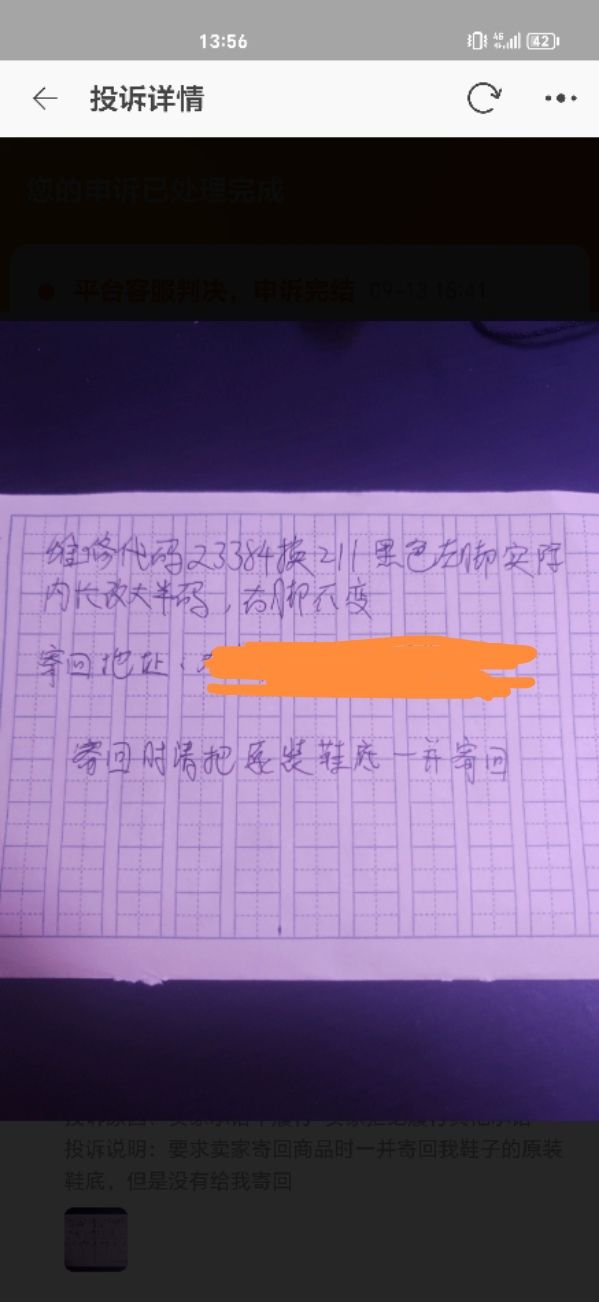 13:56
42
投诉详情
您的申诉已处理完成
平台客服判决，申诉完结 09-13 16:41
维修代码23384换211黑色左脚实际
内长改大半码，右脚不变
寄回地址：
寄回时请把原装鞋底一并寄回
投诉说明：要求卖家寄回商品时一并寄回我鞋子的原装
鞋底，但是没有给我寄回